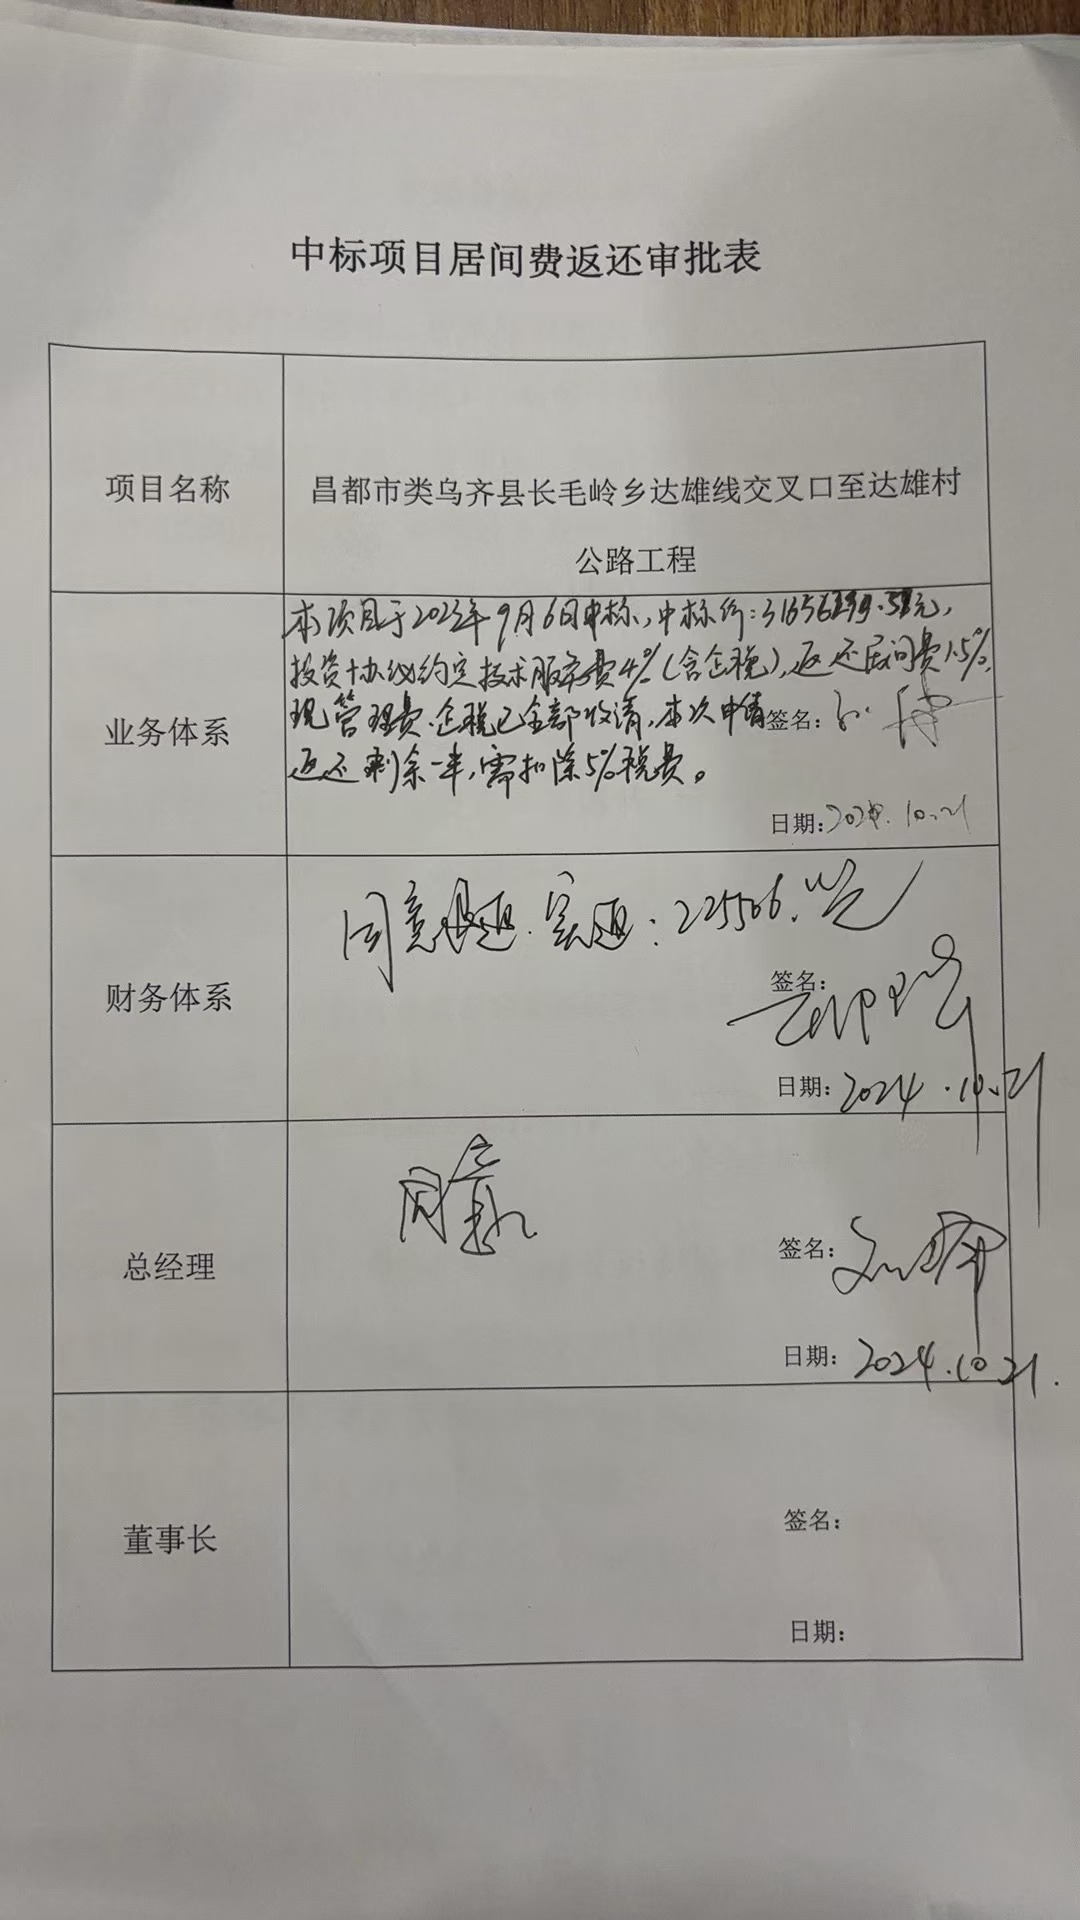 中标项目居间费返还审批表
项目名称
昌都市类乌齐县长毛岭乡达雄线交叉口至达雄村
公路工程
业务体系
本项目于2023年9月6日中标，中标价：31656299.58元，
投资协议约定技术服务费4%（含企税），返还居间费1.5%，
现管理费、企税已全部收清，本次申请
返还剩余一半，需扣除5%税费。
签名：
日期：2024.10.21
财务体系
同意退返.实返：225506.
签名：
日期：2024.10.21
总经理
同意
签名：
日期：2024.10.21.
董事长
签名：
日期：